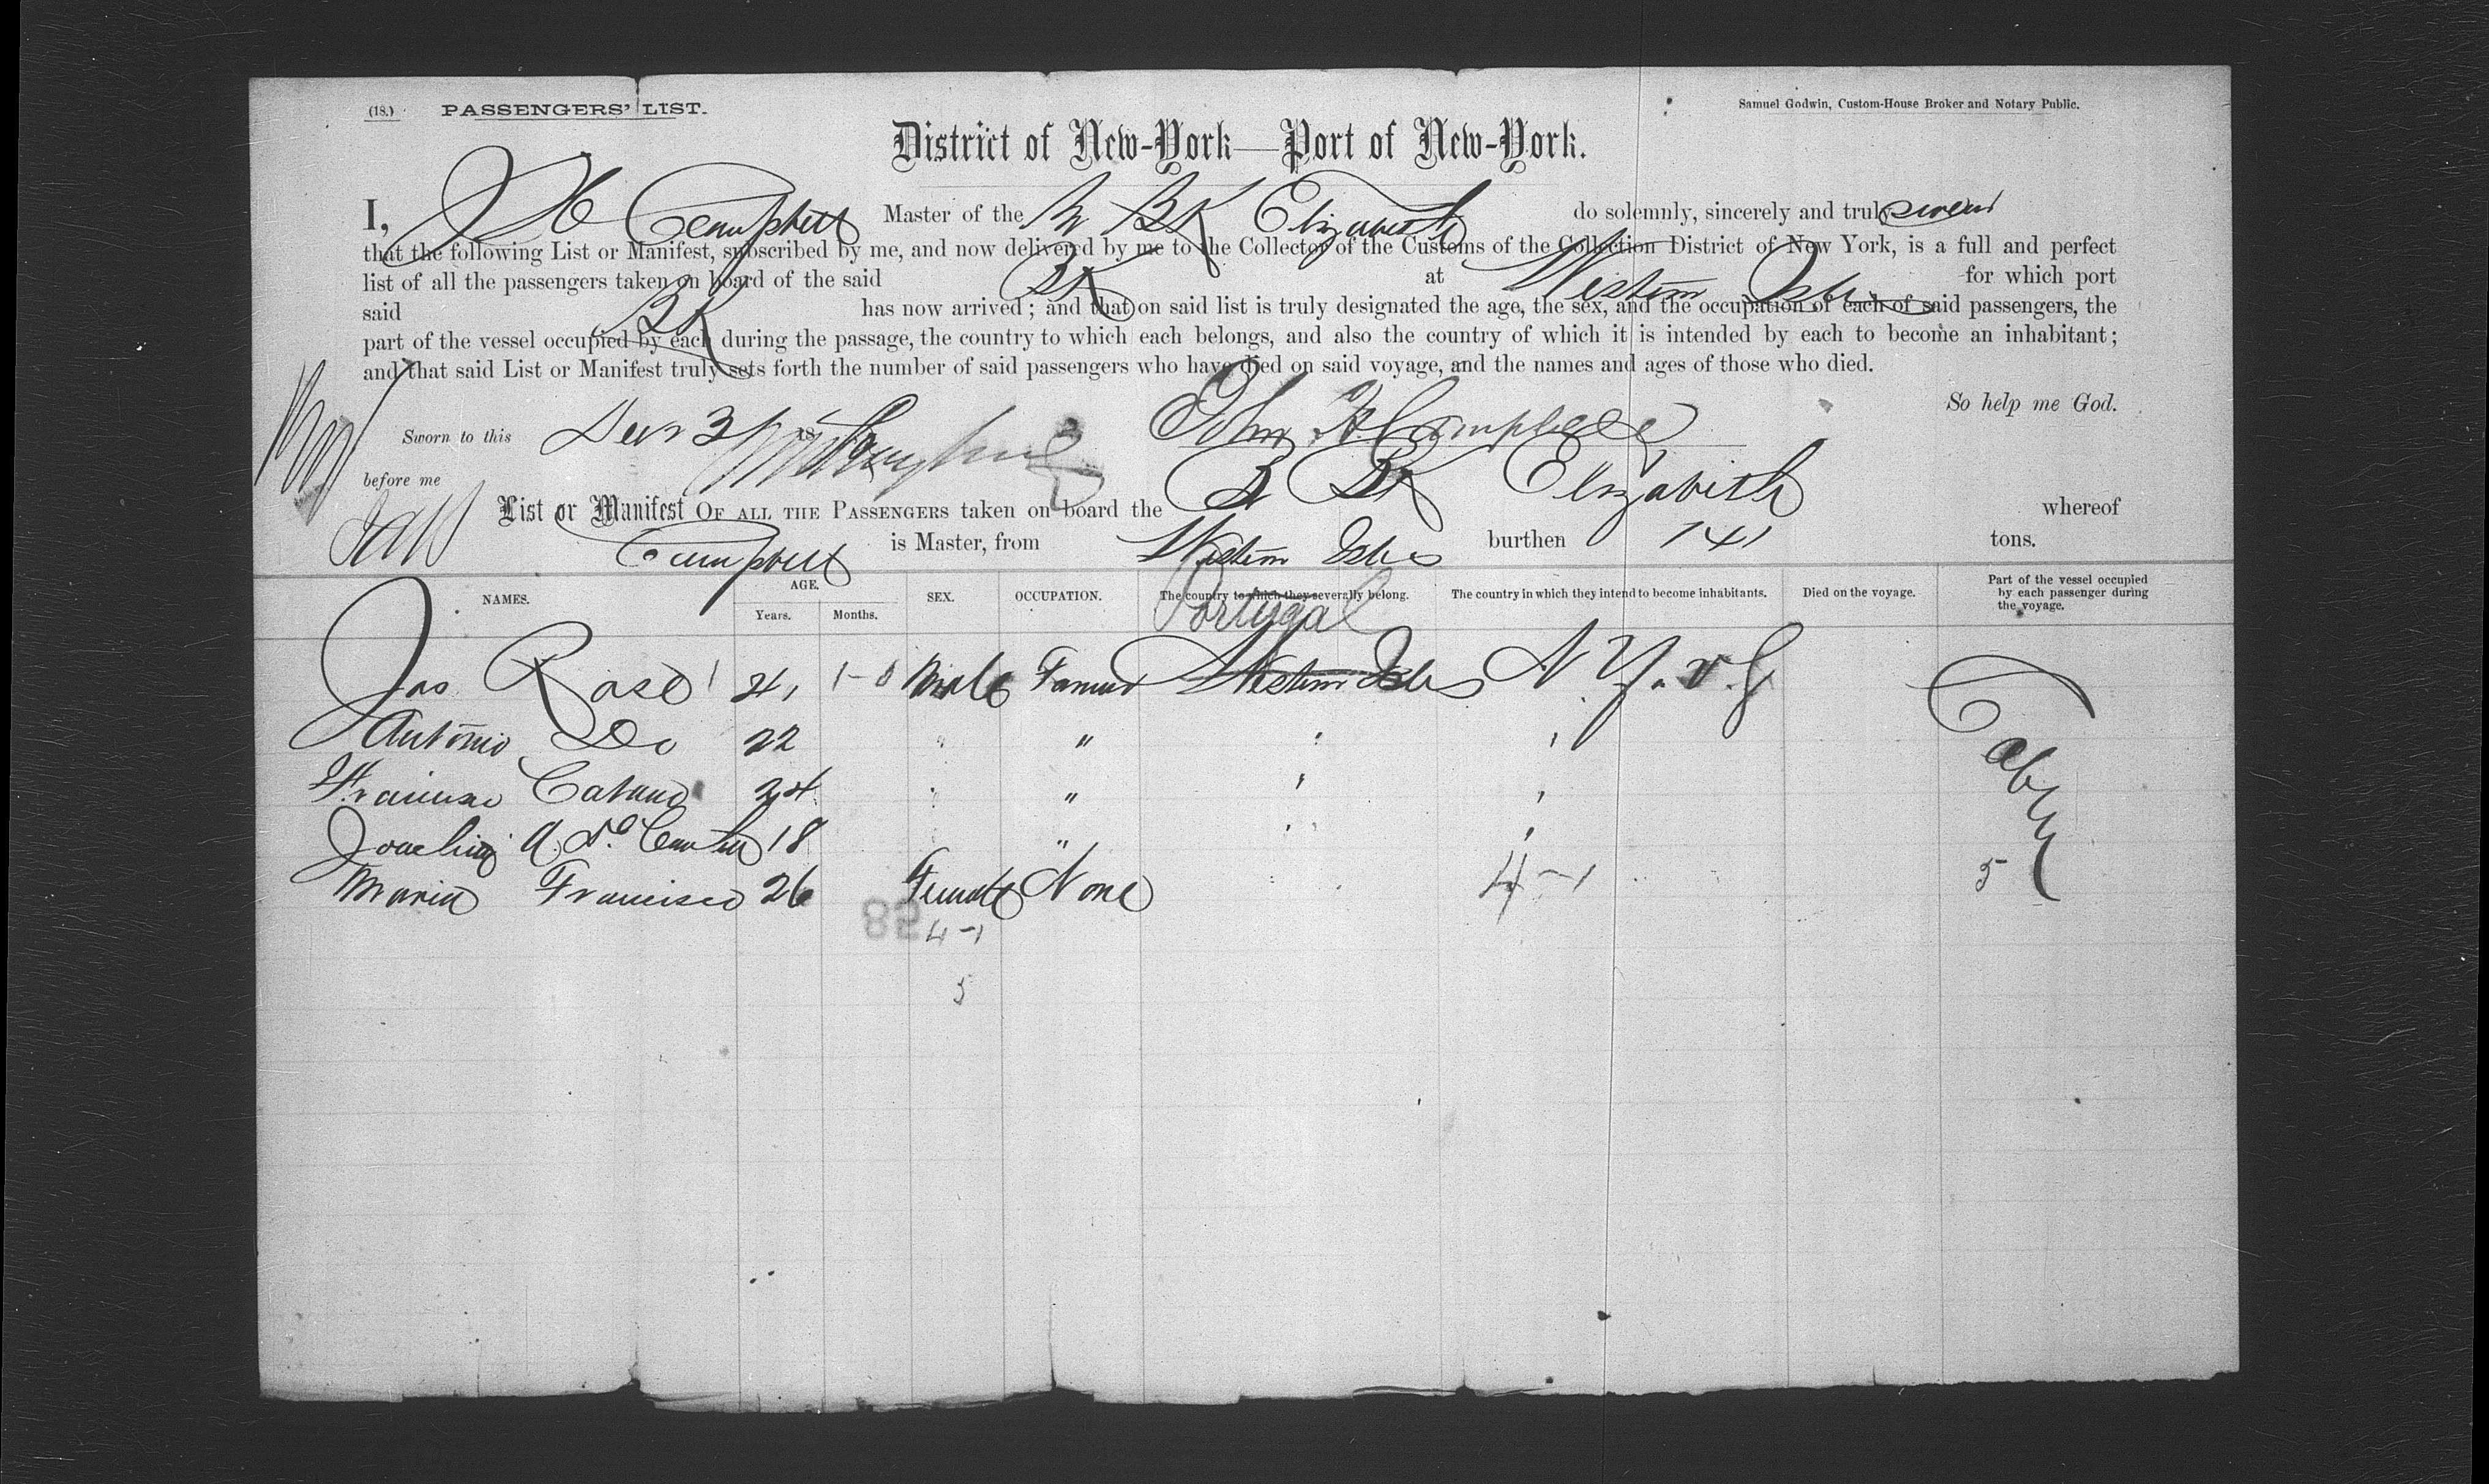 (18.) PASSENGERS' LIST. Samuel Godwin, Custom-House Broker and Notary Public.
District of New-York—Port of New-York.
I, J H Campbell Master of the Bk Elizabeth do solemnly, sincerely and truly swear
that the following List or Manifest, subscribed by me, and now delivered by me to the Collector of the Customs of the Collection District of New York, is a full and perfect
list of all the passengers taken on board of the said Bk at Western Isles for which port
said Bk has now arrived; and that on said list is truly designated the age, the sex, and the occupation of each of said passengers, the
part of the vessel occupied by each during the passage, the country to which each belongs, and also the country of which it is intended by each to become an inhabitant;
and that said List or Manifest truly sets forth the number of said passengers who have died on said voyage, and the names and ages of those who died.
So help me God.
Sworn to this 3 18 John H Campbell
before me
List or Manifest OF ALL THE PASSENGERS taken on board the B Bk Elizabeth whereof
Campbell is Master, from Western Isles burthen 141 tons.
NAMES. AGE. Years. Months. SEX. OCCUPATION. The country to which they severally belong. The country in which they intend to become inhabitants. Died on the voyage. Part of the vessel occupied by each passenger during the voyage.
Portugal
Jas Rase 24 Male Farmer Western Isles N.Y.
Antonio Do 22 " " " "
Francisco 24 " " " "
Joachim A. 18 " " " "
Maria Francisco 26 Female None 4-1 5
82 4-1
5